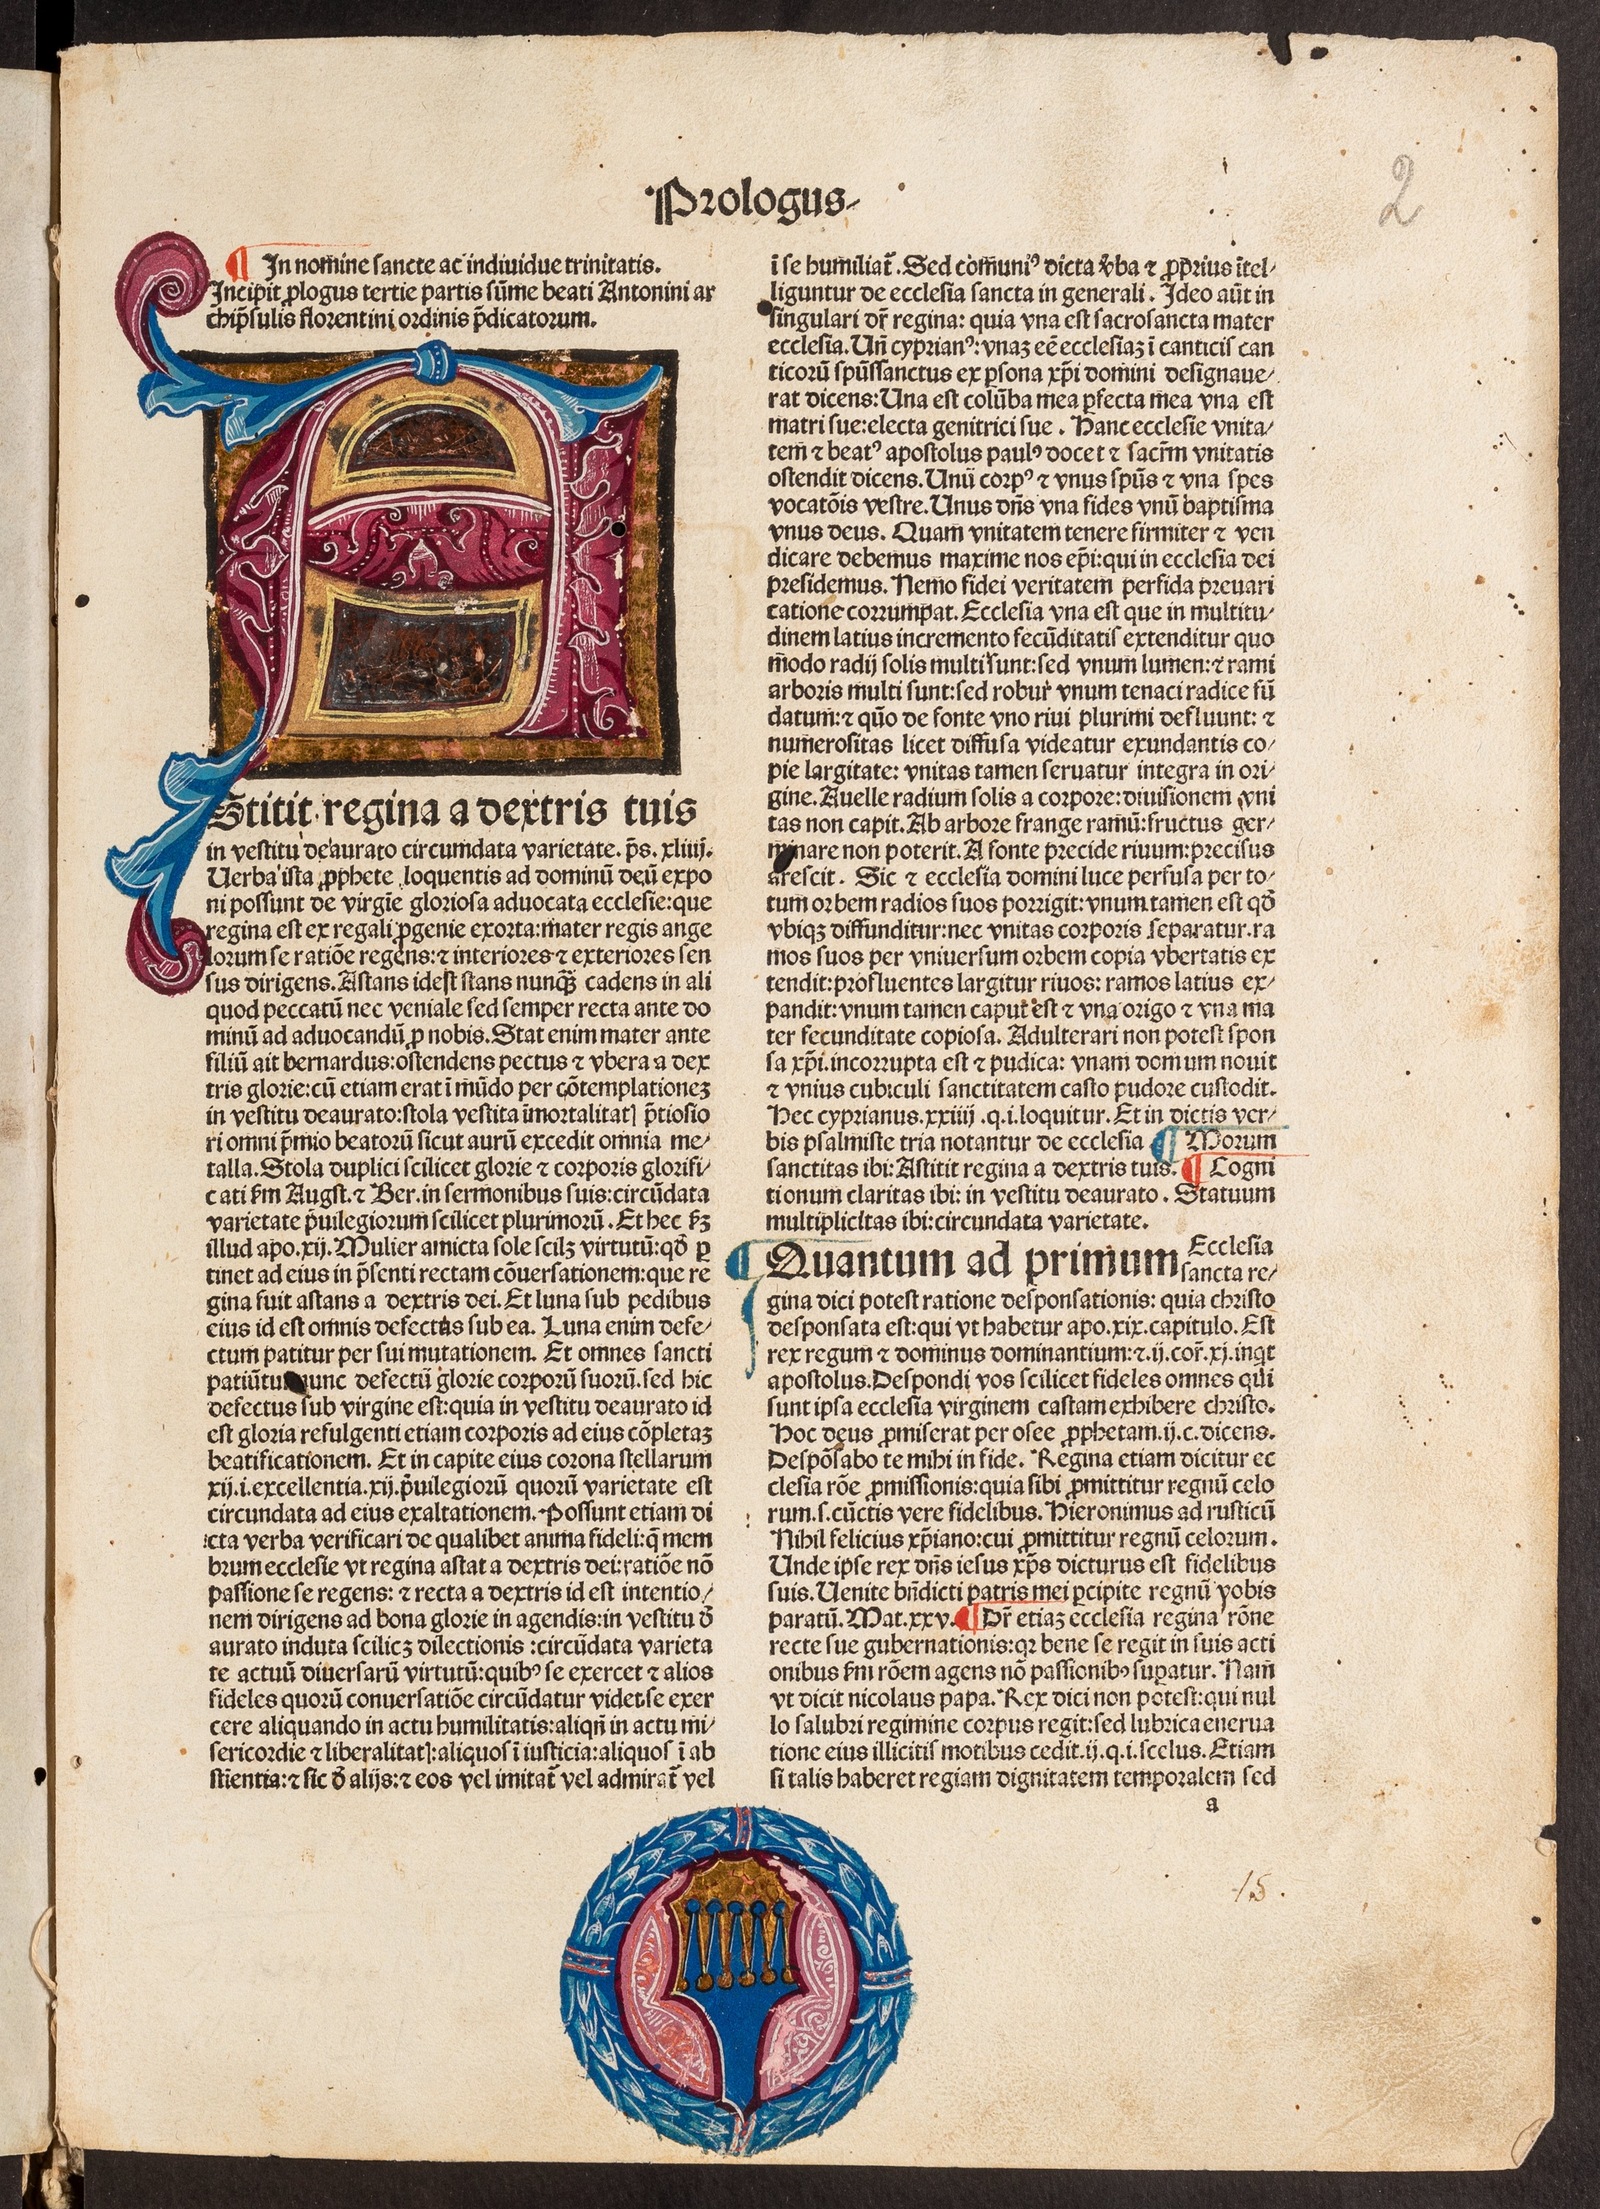 Prologus
2
¶ In nomine sancte ac indiuidue trinitatis.
Incipit ꝓlogus tertie partis sūme beati Antonini ar
chip̄sulis florentini ordinis p̄dicatorum.
AStitit regina a dextris tuis
in vestitu deaurato circumdata varietate. p̄s. xliiij.
Uerba ista ꝓphete loquentis ad dominū deū expo
ni possunt de virgīe gloriosa aduocata ecclesie:que
regina est ex regali ꝓgenie exorta:mater regis ange
lorum se ratiōe regens:⁊ interiores ⁊ exteriores sen
sus dirigens. Astans idest stans nunq̄ꝫ cadens in ali
quod peccatū nec veniale sed semper recta ante do
minū ad aduocandū ꝓ nobis. Stat enim mater ante
filiū ait bernardus:ostendens pectus ⁊ vbera a dex
tris glorie:cū etiam erat ī mūdo per cōtemplationeꝫ
in vestitu deaurato:stola vestita īmortalitatꝭ p̄tiosio
ri omni p̄mio beatorū sicut aurū excedit omnia me⸗
talla. Stola duplici scilicet glorie ⁊ corporis glorifi⸗
cati ẜm Augst. ⁊ Ber. in sermonibus suis:circūdata
varietate p̄uilegiorum scilicet plurimorū. Et hec ẜꝫ
illud apo. xij. Mulier amicta sole scilꝫ virtutū:qđ ꝑ
tinet ad eius in p̄senti rectam cōuersationem:que re
gina fuit astans a dextris dei. Et luna sub pedibus
eius id est omnis defectus sub ea. Luna enim defe⸗
ctum patitur per sui mutationem. Et omnes sancti
patiūtur nunc defectū glorie corporū suorū. sed hic
defectus sub virgine est:quia in vestitu deaurato id
est gloria refulgenti etiam corporis ad eius cōpletaꝫ
beatificationem. Et in capite eius corona stellarum
xij. i. excellentia. xij. p̄uilegiorū quorū varietate est
circundata ad eius exaltationem. Possunt etiam di
cta verba verificari de qualibet anima fideli:q̄ mem
brum ecclesie vt regina astat a dextris dei:ratiōe nō
passione se regens: ⁊ recta a dextris id est intentio⸗
nem dirigens ad bona glorie in agendis:in vestitu đ
aurato induta scilicꝫ dilectionis :circūdata varieta
te actuū diuersarū virtutū:quibꝰ se exercet ⁊ alios
fideles quorū conuersatiōe circūdatur videt. se exer
cere aliquando in actu humilitatis:aliqn̄ in actu mi⸗
sericordie ⁊ liberalitatꝭ:aliquos ī iusticia:aliquos ī ab
stientia:⁊ sic đ alijs:⁊ eos vel imitat̄ vel admirat̄ vel
ī se humiliat̄. Sed cōmuniꝰ dicta v̄ba ⁊ ꝓprius ītel⸗
liguntur de ecclesia sancta in generali. Ideo aūt in
singulari dr̄ regina: quia vna est sacrosancta mater
ecclesia. Un̄ cyprianꝰ: vnaꝫ eē ecclesiaꝫ ī canticis can
ticorū spūssanctus ex ꝑsona xp̄i domini designaue⸗
rat dicens:Una est colūba mea ꝑfecta mea vna est
matri sue:electa genitrici sue. Hanc ecclesie vnita⸗
tem ⁊ beatꝰ apostolus paulꝰ docet ⁊ sacrm̄ vnitatis
ostendit dicens. Unū corpꝰ ⁊ vnus spūs ⁊ vna spes
vocatōis vestre. Unus dn̄s vna fides vnū baptisma
vnus deus. Quam vnitatem tenere firmiter ⁊ ven
dicare debemus maxime nos ep̄i:qui in ecclesia dei
presidemus. Nemo fidei veritatem perfida preuari
catione corrumpat. Ecclesia vna est que in multitu⸗
dinem latius incremento fecūditatis extenditur quo
modo radij solis multi sunt:sed vnum lumen:⁊ rami
arboris multi sunt:sed robur vnum tenaci radice fū
datum:⁊ quō de fonte vno riui plurimi defluunt: ⁊
numerositas licet diffusa videatur exundantis co⸗
pie largitate: vnitas tamen seruatur integra in ori⸗
gine. Auelle radium solis a corpore:diuisionem vni
tas non capit. Ab arbore frange ramū:fructus ger⸗
minare non poterit. A fonte precide riuum:precisus
arescit. Sic ⁊ ecclesia domini luce perfusa per to⸗
tum orbem radios suos porrigit:vnum tamen est qđ
vbiqꝫ diffunditur:nec vnitas corporis separatur. ra
mos suos per vniuersum orbem copia vbertatis ex
tendit:profluentes largitur riuos: ramos latius ex⸗
pandit:vnum tamen caput est ⁊ vna origo ⁊ vna ma
ter fecunditate copiosa. Adulterari non potest spon
sa xp̄i. incorrupta est ⁊ pudica: vnam domum nouit
⁊ vnius cubiculi sanctitatem casto pudore custodit.
Hec cyprianus. xxiiij .q. i. loquitur. Et in dictis ver⸗
bis psalmiste tria notantur de ecclesia ¶ Morum
sanctitas ibi:Astitit regina a dextris tuis. ¶ Cogni
tionum claritas ibi: in vestitu deaurato. Statuum
multiplicitas ibi:circundata varietate.
¶ Quantum ad primum Ecclesia
sancta re⸗
gina dici potest ratione desponsationis: quia christo
desponsata est:qui vt habetur apo. xix. capitulo. Est
rex regum ⁊ dominus dominantium:⁊. ij. cor̄. xj. inqt
apostolus. Despondi vos scilicet fideles omnes qui
sunt ipsa ecclesia virginem castam exhibere christo.
Hoc deus ꝓmiserat per osee ꝓphetam. ij. c. dicens.
Despōsabo te mihi in fide. Regina etiam dicitur ec
clesia rōe ꝓmissionis:quia sibi ꝓmittitur regnū celo
rum. s. cūctis vere fidelibus. Hieronimus ad rusticū
Nihil felicius xp̄iano:cui ꝓmittitur regnū celorum.
Unde ipse rex dn̄s iesus xp̄s dicturus est fidelibus
suis. Uenite bn̄dicti patris mei ꝑcipite regnū vobis
paratū. Mat. xxv. ¶ Dr̄ etiaꝫ ecclesia regina rōne
recte sue gubernationis:qꝛ bene se regit in suis acti
onibus ẜm rōem agens nō passionibꝰ suꝑatur. Nam
vt dicit nicolaus papa. Rex dici non potest:qui nul
lo salubri regimine corpus regit:sed lubrica enerua
tione eius illicitis motibus cedit. ij. q. i. scelus. Etiam
si talis haberet regiam dignitatem temporalem sed
a
15.